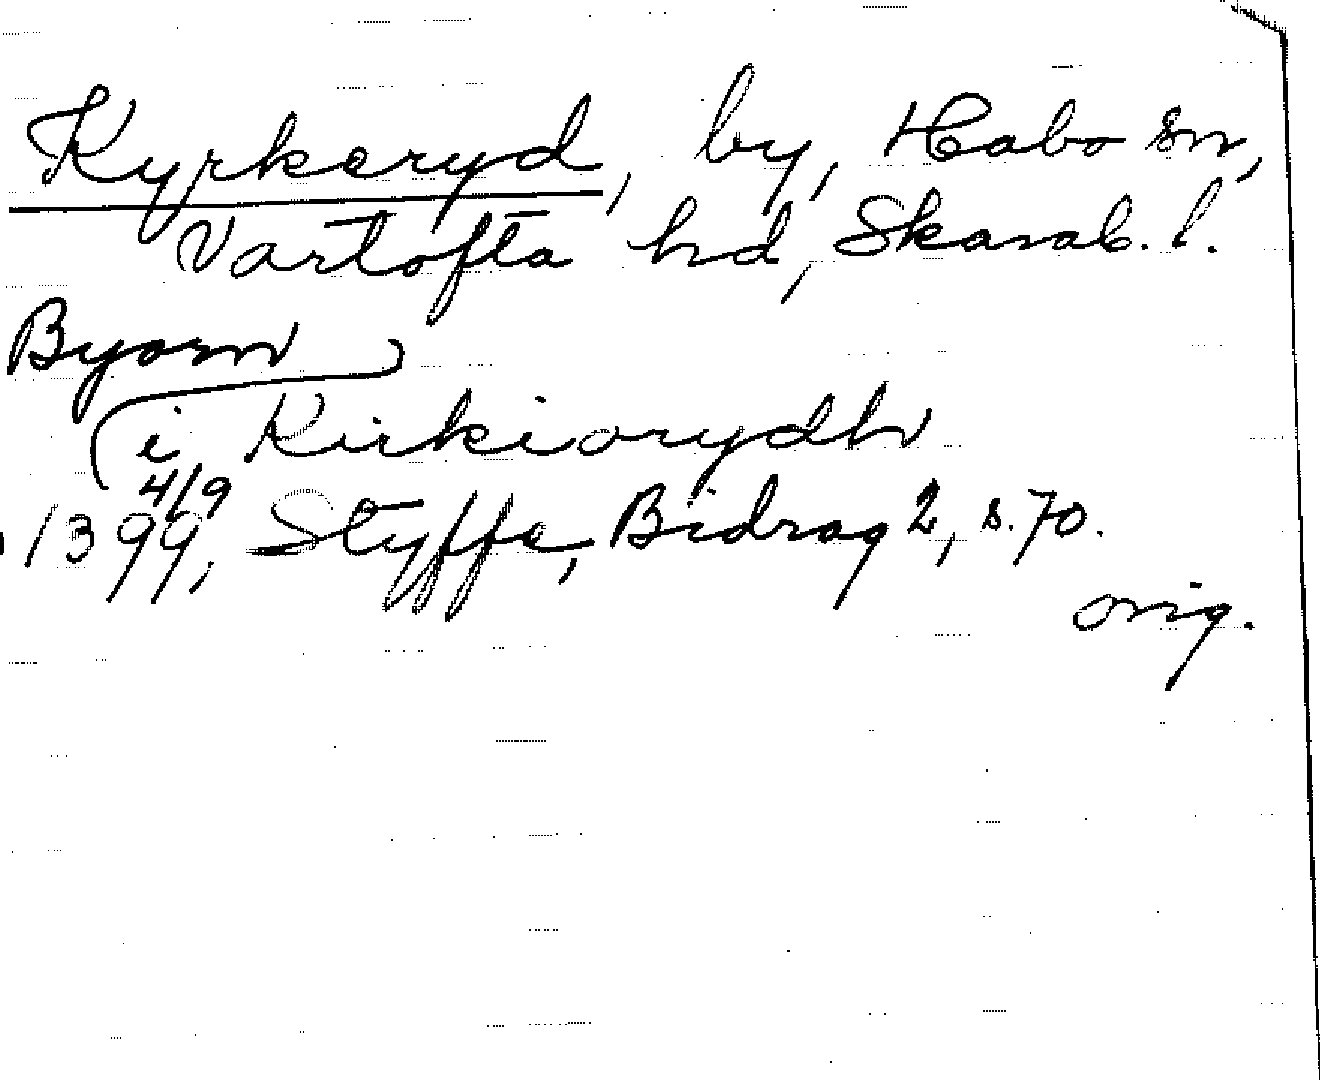 Kyrkeryd, by, Habo sn,
Vartofta hd, Skarab. l.
Byorn
i Kirkiorydh
4/9
1399, Styffe, Bidrag 2, s. 70.
orig.